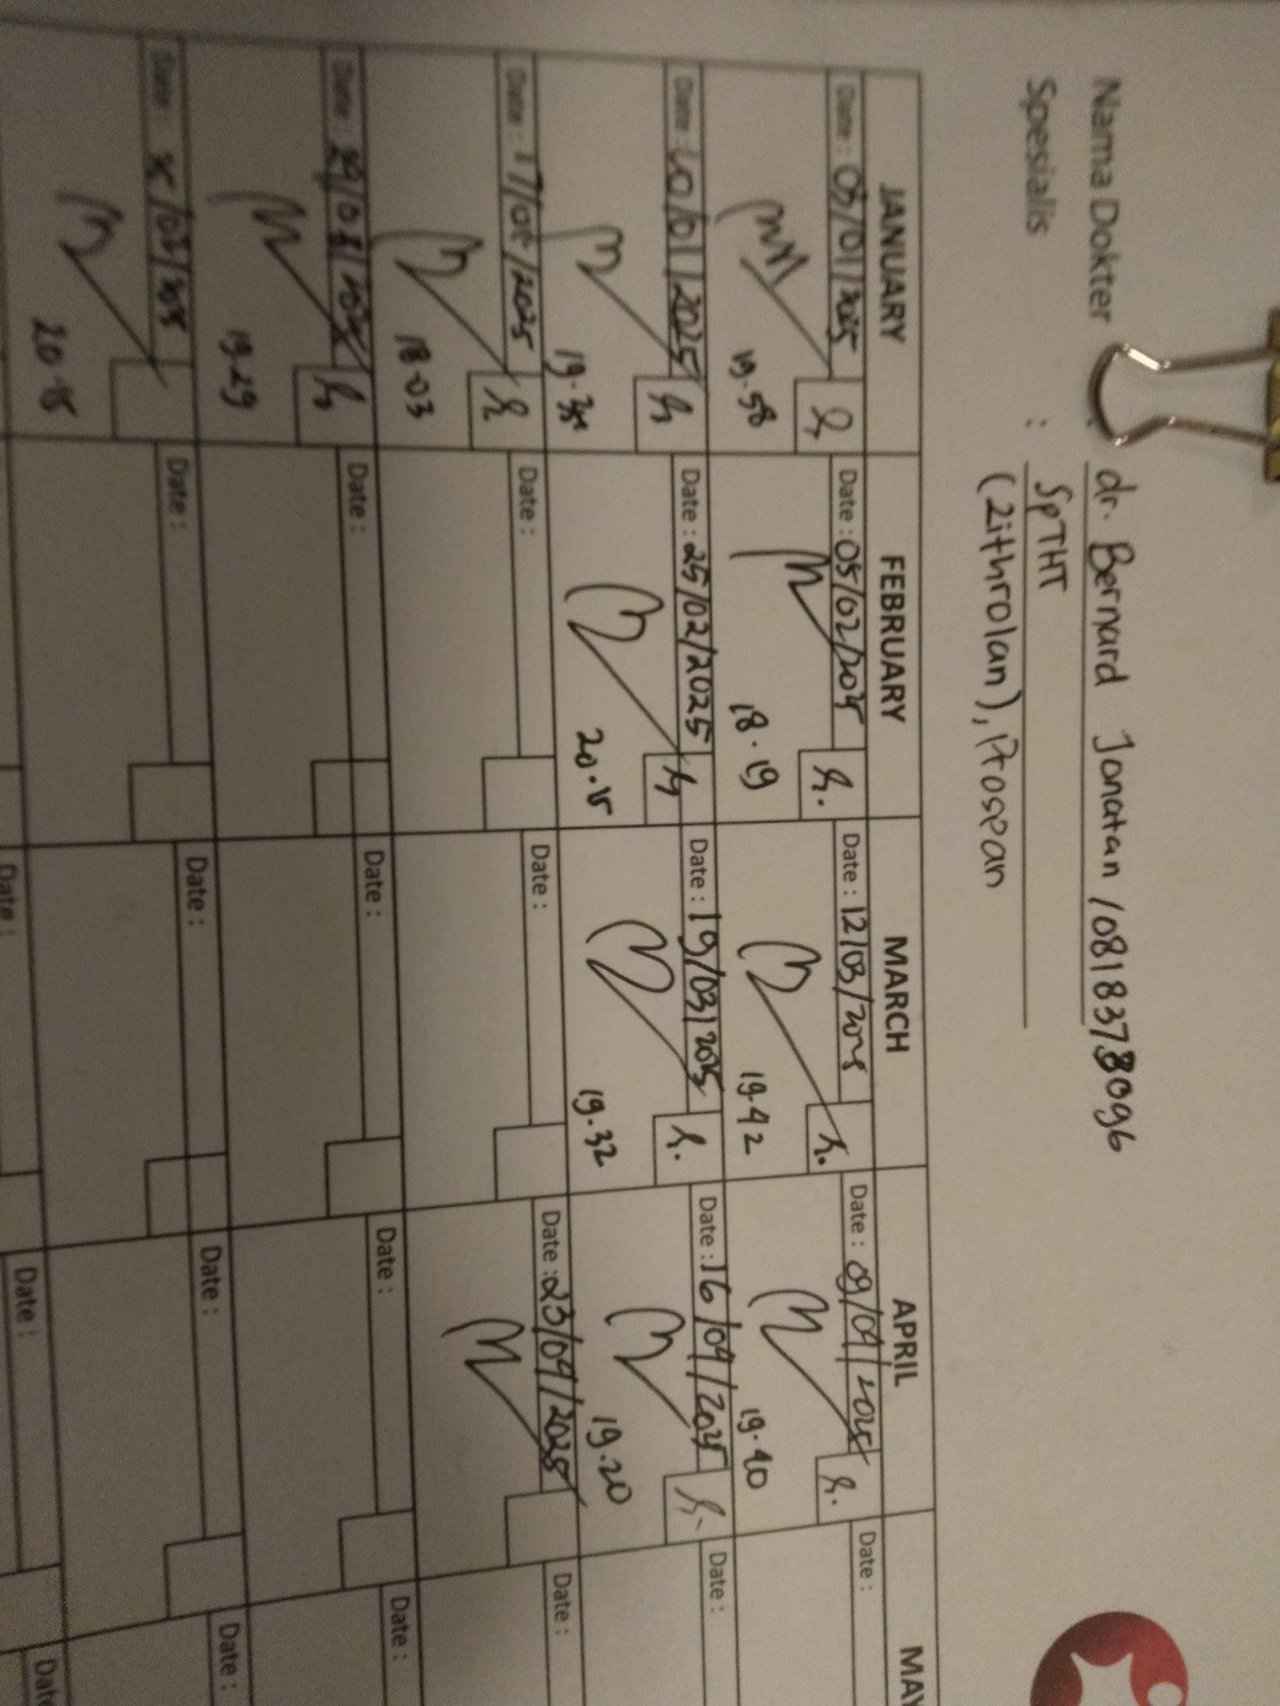 Nama Dokter : dr. Bernard Jonatan / 0818378096
Spesialis : SpTHT
(Zithrolan), Prospan
JANUARY FEBRUARY MARCH APRIL MAY
Date : 03/01/2025 Date : 05/02/2025 Date : 12/03/2025 Date : 09/04/2025 Date :
19.58 18.19 19.42 19.40
Date : 10/01/2025 Date : 25/02/2025 Date : 19/03/2025 Date : 16/04/2025 Date :
20.15 19.32 19.20
Date : 17/01/2025 Date : Date : Date : 23/04/2025 Date :
18.03
Date : Date : Date : Date : Date :
19.29
Date : Date : Date : Date : Date :
20.15
Date : Date : Date